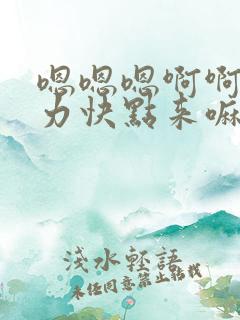 嗯嗯嗯啊啊
力快點来嘛
淺水輕語
未经同意禁止转载